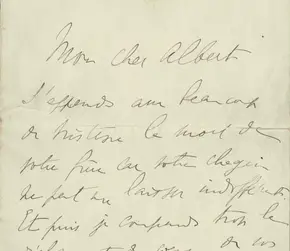 Mon cher Albert
J'apprends avec beaucoup
de tristesse la mort de
votre frère car votre chagrin
ne peut me laisser indifférent.
Et puis je comprends trop le